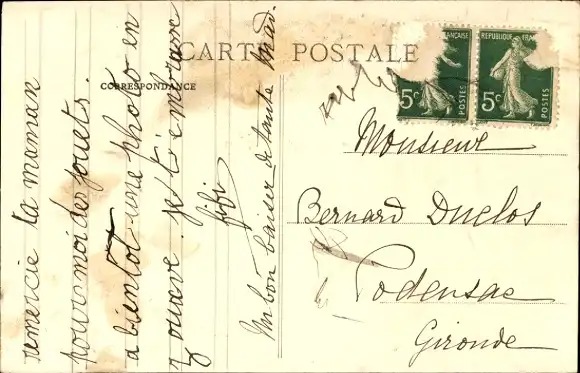 CARTE POSTALE
CORRESPONDANCE
remercie ta maman
pour moi des jouets.
a bientot une photo en
zouave. je t'embrasse
fifi
Un bon baiser de tante Mad.
RÉPUBLIQUE FRA
5c POSTES
5c POSTES
Monsieur
Bernard Duclos
Podensac
Gironde